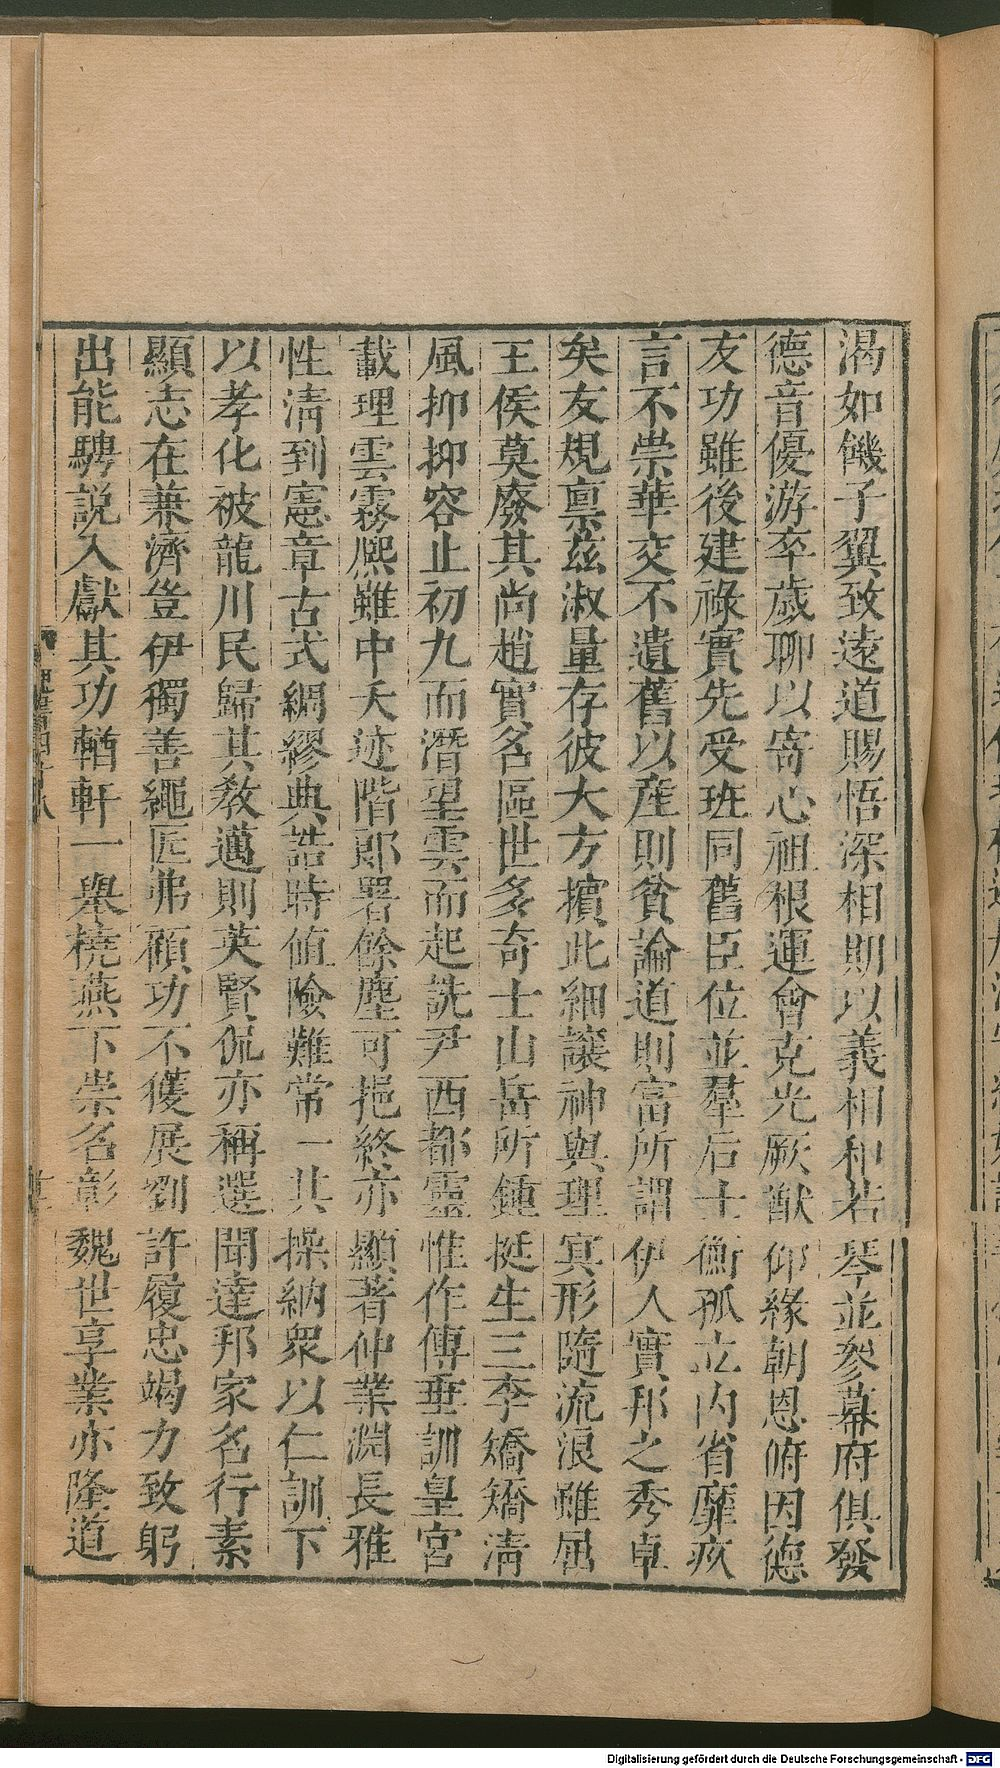 渴如饑子翼致遠道賜悟深相期以義相和若琴並參幕府俱發
德音優游卒歲聊以寄心祖根運會克光厥猷仰緣朝恩俯因德
友功雖後建祿實先受班同舊臣位並羣后士衡孤立內省靡疚
言不崇華交不遺舊以產則貧論道則富所謂伊人實邦之秀卓
矣友規禀茲淑量存彼大方擯此細讓神與理冥形隨流浪雖屈
王侯莫廢其尚趙實名區世多奇士山岳所鍾挺生三李矯矯清
風抑抑容止初九而潛望雲而起詵尹西都靈惟作傳垂訓皇宮
載理雲霧熙雖中夭迹階郎署餘塵可挹終亦顯著仲業淵長雅
性清到憲章古式綢繆典誥時值險難常一其操納眾以仁訓下
以孝化被龍川民歸其教邁則英賢侃亦稱選聞達邦家名行素
顯志在兼濟豈伊獨善繩匠弗顧功不獲展劉許履忠竭力致躬
出能騁說入獻其功輶軒一舉橈燕下崇名彰魏世享業亦隆道
Digitalisierung gefördert durch die Deutsche Forschungsgemeinschaft - DFG